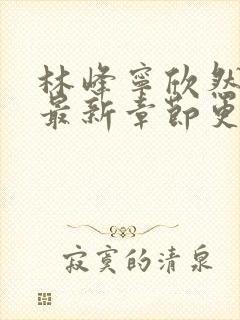 林峰寧欣然
最新章節更
寂寞的清泉